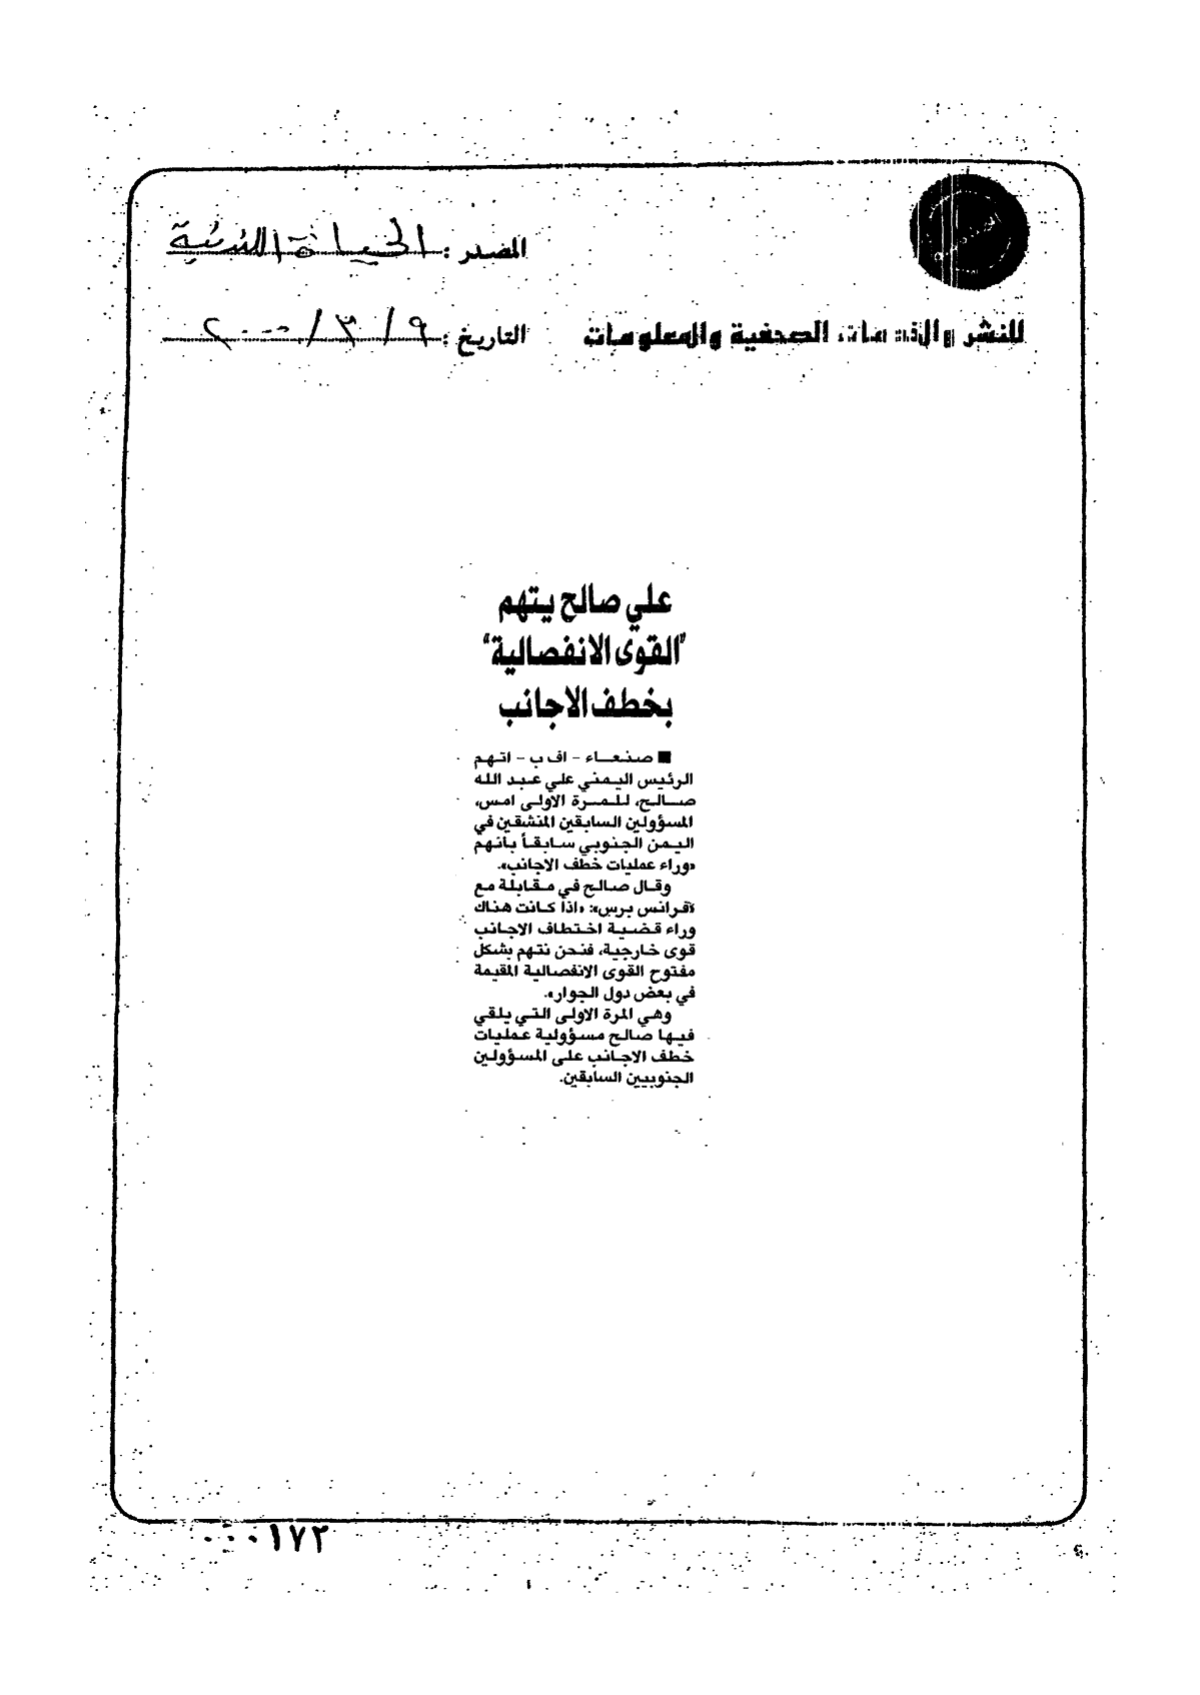 المصدر : الحياة اللندنية
للنشر والخدمات الصحفية والمعلومات
التاريخ : ٩ / ٣ / ٢٠٠٠
علي صالح يتهم
"القوى الانفصالية"
بخطف الاجانب
■ صنعاء - اف ب - اتهم
الرئيس اليمني علي عبد الله
صالح، للمرة الاولى امس،
المسؤولين السابقين المنشقين في
اليمن الجنوبي سابقاً بانهم
«وراء عمليات خطف الاجانب».
وقال صالح في مقابلة مع
«فرانس برس»: «اذا كانت هناك
وراء قضية اختطاف الاجانب
قوى خارجية، فنحن نتهم بشكل
مفتوح القوى الانفصالية المقيمة
في بعض دول الجوار».
وهي المرة الاولى التي يلقي
فيها صالح مسؤولية عمليات
خطف الاجانب على المسؤولين
الجنوبيين السابقين.
٠٠٠١٧٢